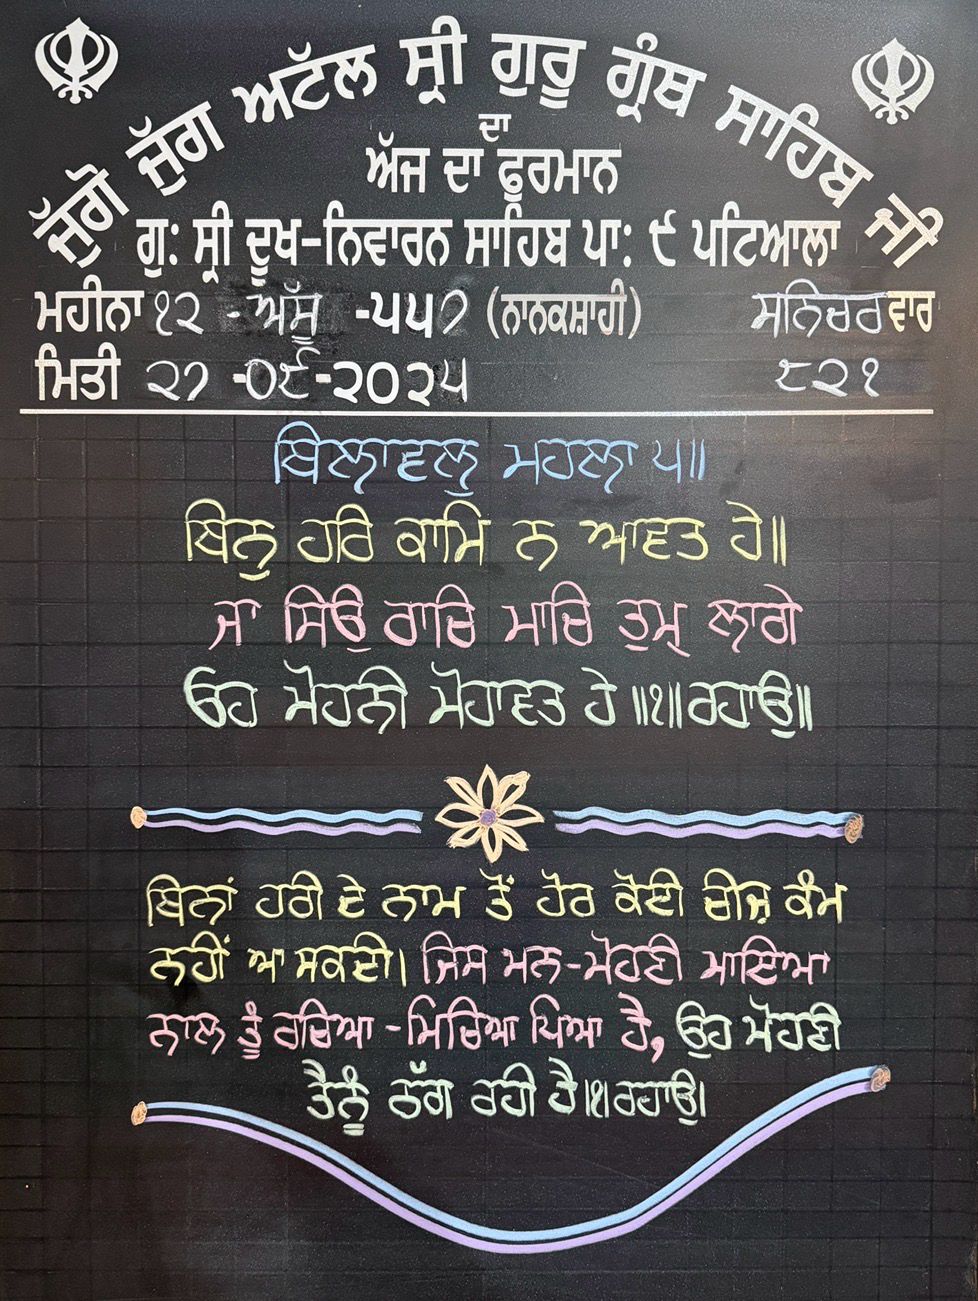 ਜੁੱਗੋ ਜੁੱਗ ਅਟੱਲ ਸ੍ਰੀ ਗੁਰੂ ਗ੍ਰੰਥ ਸਾਹਿਬ ਜੀ
ਦਾ
ਅੱਜ ਦਾ ਫੁਰਮਾਨ
ਗੁ: ਸ੍ਰੀ ਦੂਖ-ਨਿਵਾਰਨ ਸਾਹਿਬ ਪਾ: ੯ ਪਟਿਆਲਾ
ਮਹੀਨਾ ੧੨ - ਅੱਸੂ - ੫੫੭ (ਨਾਨਕਸ਼ਾਹੀ) ਸਨਿਚਰਵਾਰ
ਮਿਤੀ ੨੭ -੦੯-੨੦੨੫ ੮੨੧
ਬਿਲਾਵਲੁ ਮਹਲਾ ੫॥
ਬਿਨੁ ਹਰਿ ਕਾਮਿ ਨ ਆਵਤ ਹੇ॥
ਜਾ ਸਿਉ ਰਾਚਿ ਮਾਚਿ ਤੁਮ੍ ਲਾਗੇ
ਓਹ ਮੋਹਨੀ ਮੋਹਾਵਤ ਹੇ॥੧॥ਰਹਾਉ॥
ਬਿਨਾਂ ਹਰੀ ਦੇ ਨਾਮ ਤੋਂ ਹੋਰ ਕੋਈ ਚੀਜ਼ ਕੰਮ
ਨਹੀਂ ਆ ਸਕਦੀ। ਜਿਸ ਮਨ-ਮੋਹਣੀ ਮਾਇਆ
ਨਾਲ ਤੂੰ ਰਚਿਆ-ਮਿਚਿਆ ਪਿਆ ਹੈ, ਉਹ ਮੋਹਣੀ
ਤੈਨੂੰ ਠੱਗ ਰਹੀ ਹੈ।੧।ਰਹਾਉ।